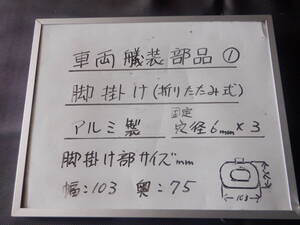 車両艤装部品①
脚掛け(折りたたみ式)
アルミ製 固定穴径6mm×3
脚掛け部サイズmm
幅:103 奥:75
103
75